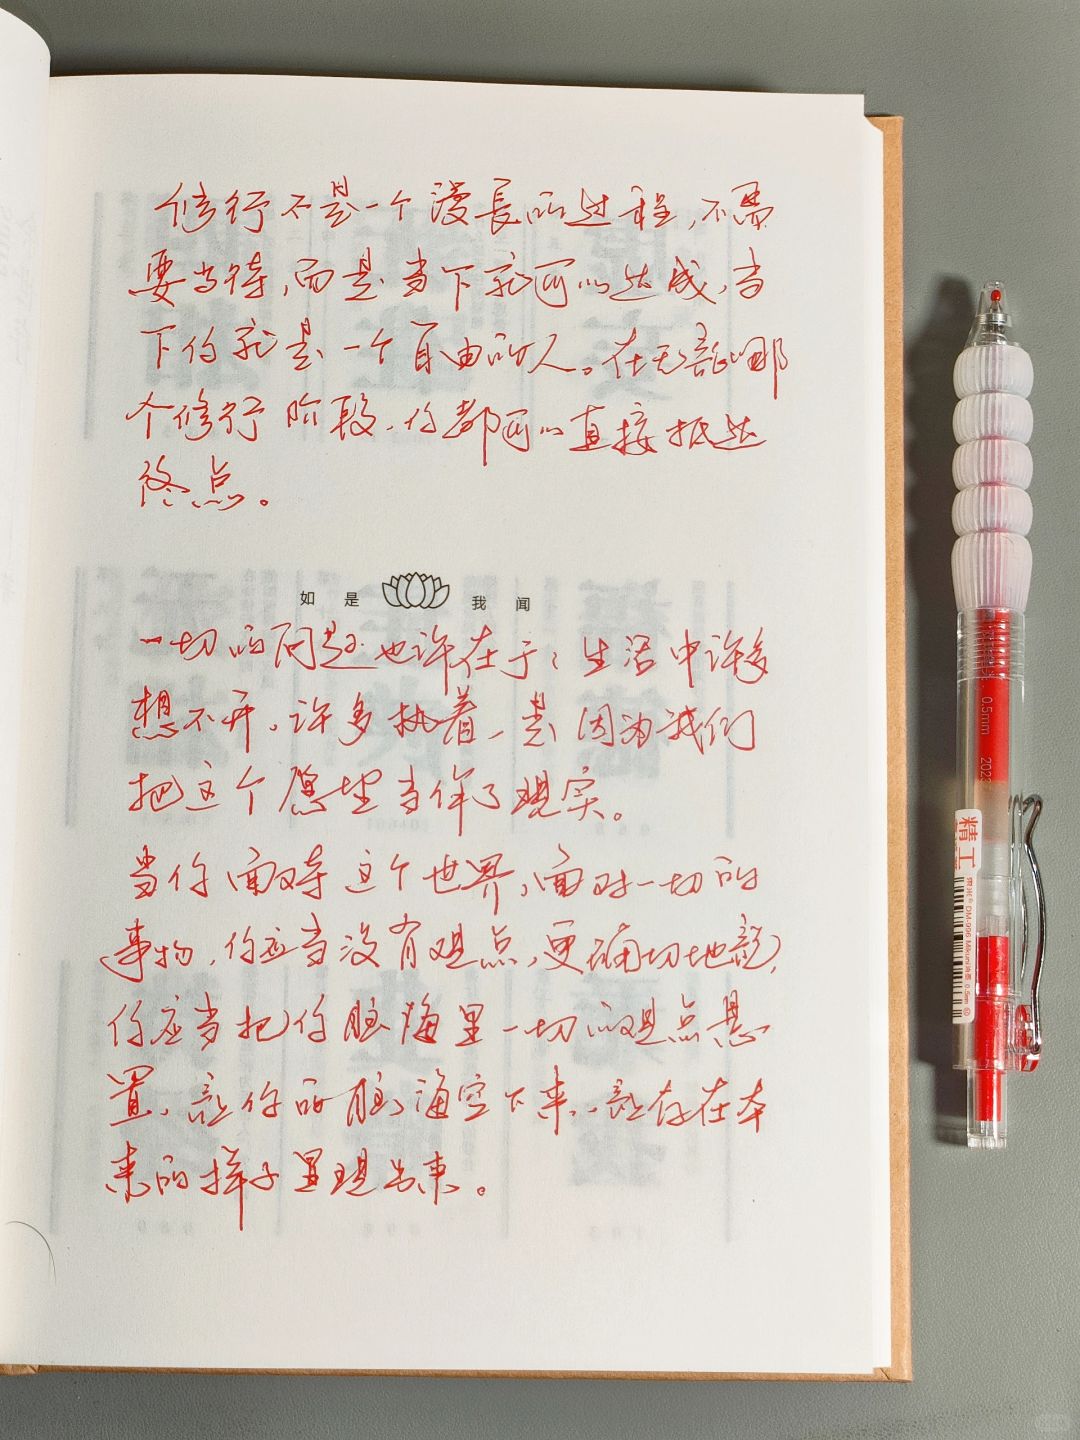 修行不是一个漫長的过程，不需
要等待，而是当下就可以达成，当
下你就是一个自由的人。在无论哪
个修行阶段，你都可以直接抵达
终点。
如是我闻
一切的问题也许在于：生活中许多
想不开，许多执着，是因为我们
把这个愿望当作了现实。
当你面对着这个世界，面对一切的
事物，你应当没有观点，更确切地说，
你应当把你脑海里一切的观点悬
置，让你的脑海空下来，让存在本
来的样子呈现出来。
0.5mm
精工